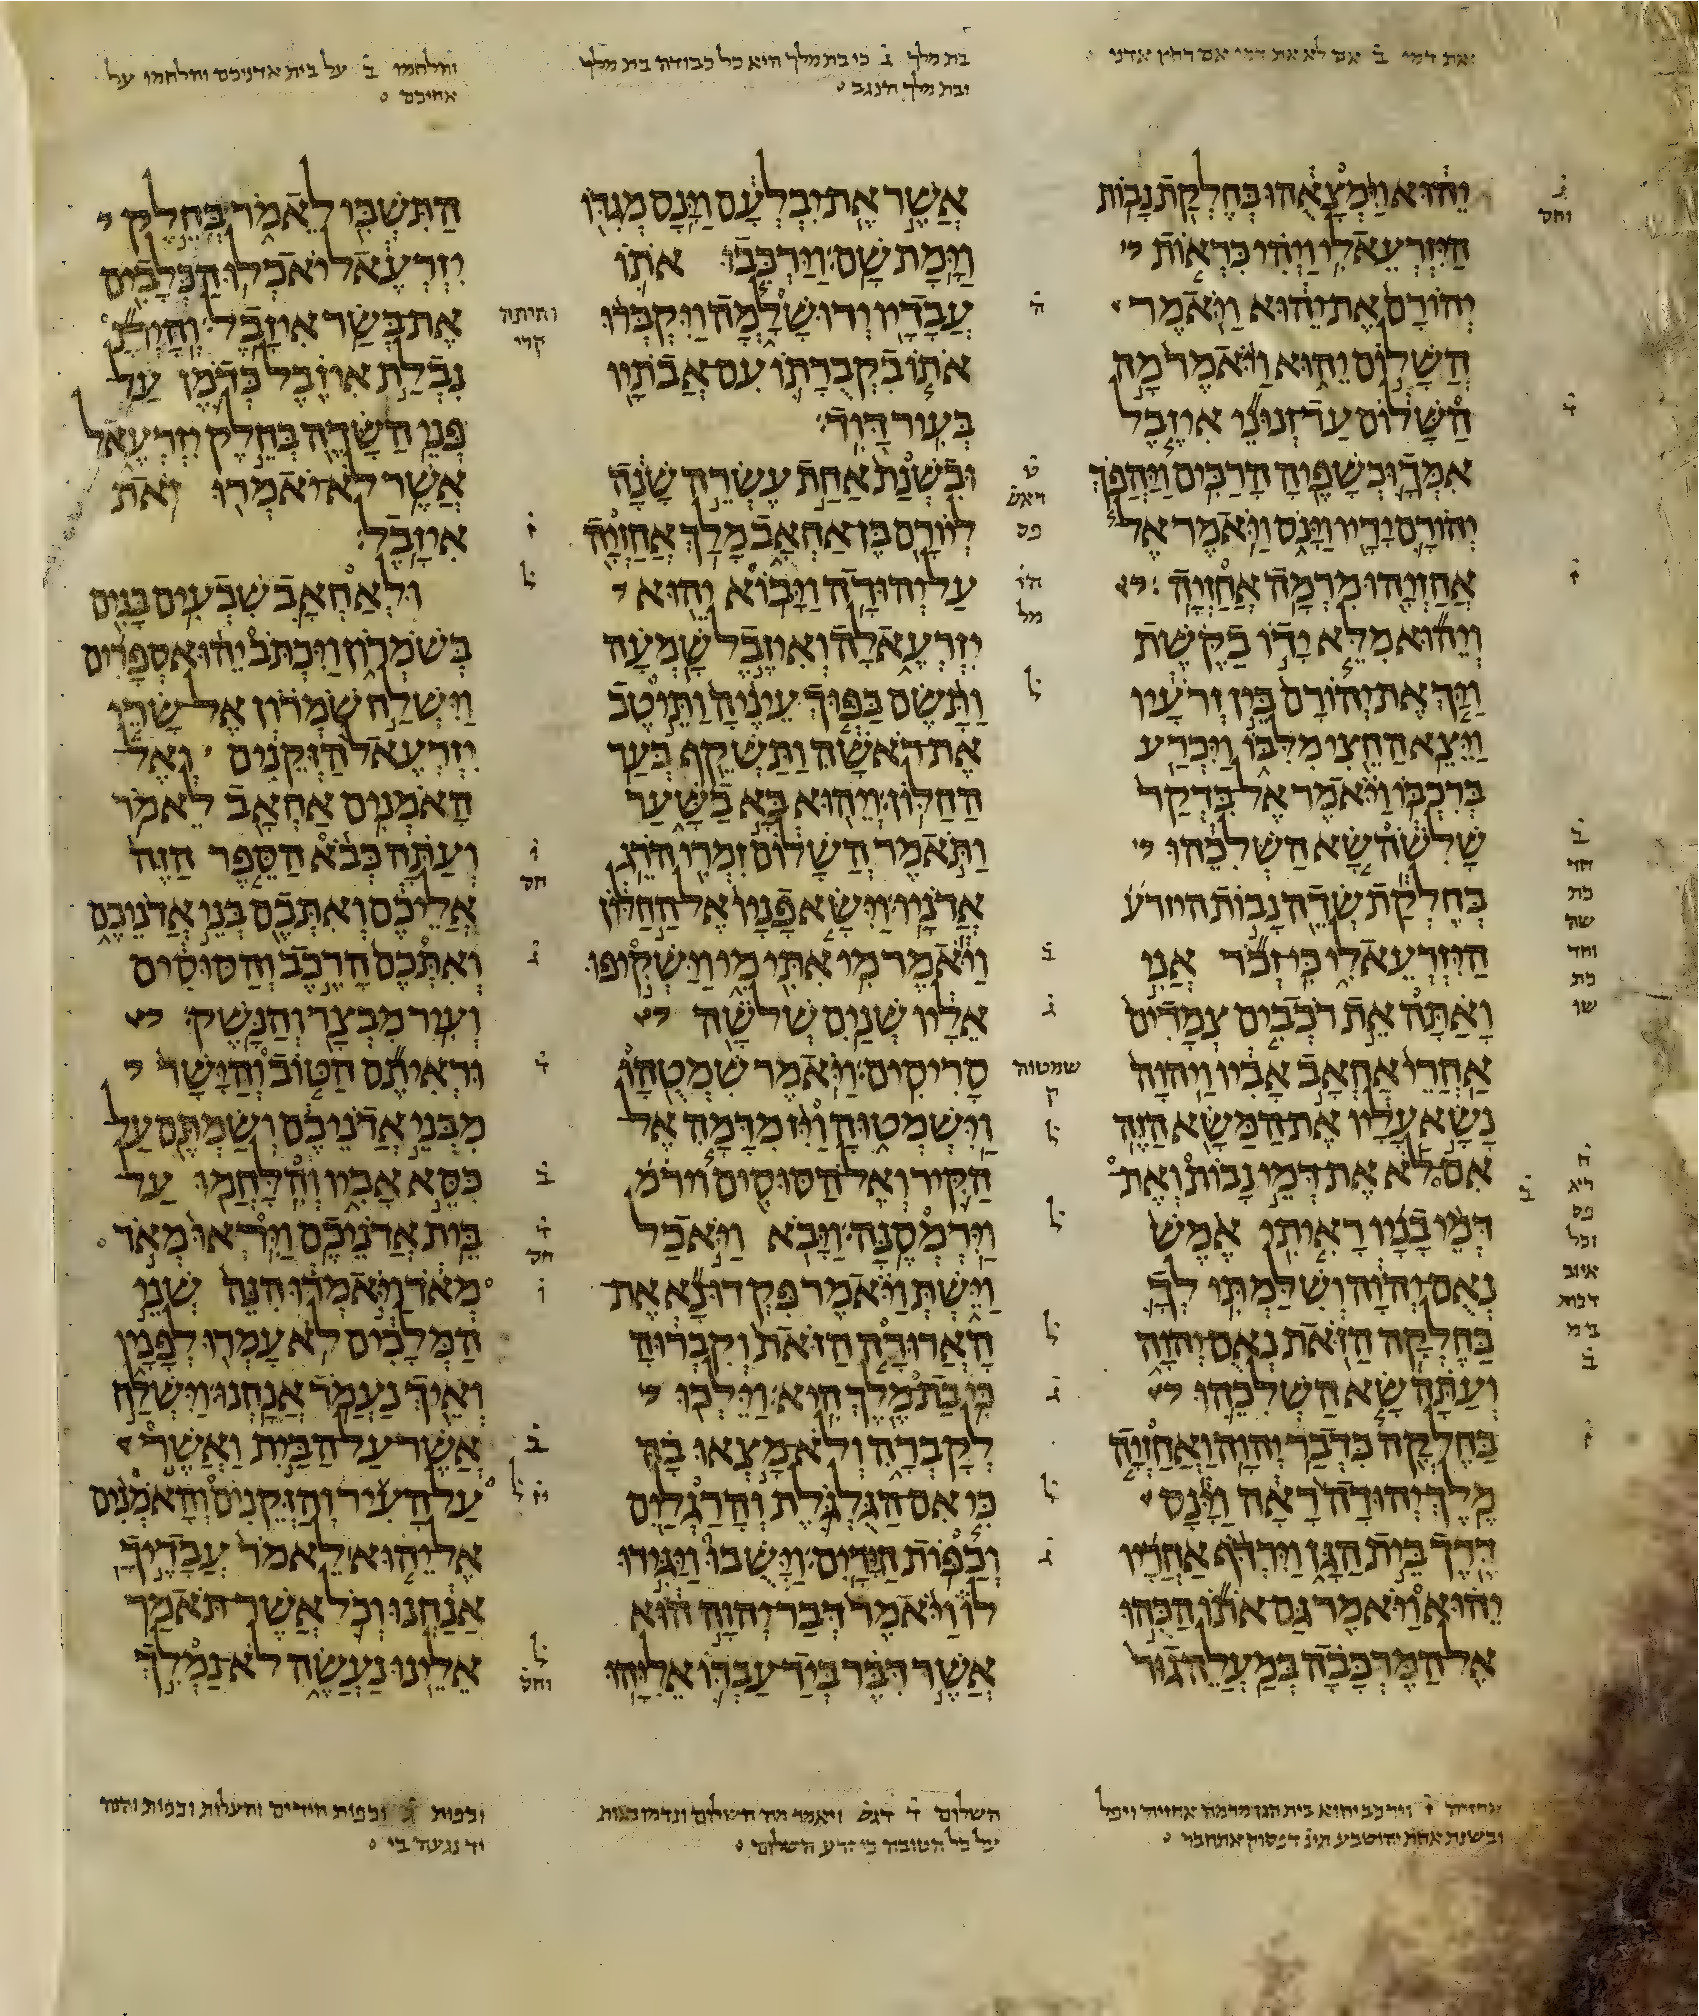 ואת דמי ב אם לא את דמי אם רחץ אדני
בת מלך ג כי בת מלך היא כל כבודה בת מלך
ובת מלך הנגב
והלחמו ב על בית אדניכם והלחמו על
אחיכם
יהוא וימצאהו בחלקת נבות
היזרעאלי ויהי כראות
יהורם את יהוא ויאמר
השלום יהוא ויאמר מה
השלום עד זנוני איזבל
אמך וכשפיה הרבים ויהפך
יהורם ידיו וינס ויאמר אל
אחזיהו מרמה אחזיה׃
ויהוא מלא ידו בקשת
ויך את יהורם בין זרעיו
ויצא החצי מלבו ויכרע
ברכבו ויאמר אל בדקר
שלשה שא השלכהו
בחלקת שדה נבות היזרע
היזרעאלי כי זכר אני
ואתה את רכבים צמדים
אחרי אחאב אביו ויהוה
נשא עליו את המשא הזה
אם לא את דמי נבות ואת
דמי בניו ראיתי אמש
נאם יהוה ושלמתי לך
בחלקה הזאת נאם יהוה
ועתה שא השלכהו
בחלקה כדבר יהוה ואחזיה
מלך יהודה ראה וינס
דרך בית הגן וירדף אחריו
יהוא ויאמר גם אתו הכהו
אל המרכבה במעלה גור
אשר את יבלעם וינס מגדו
וימת שם׃ וירכבו אתו
עבדיו ירושלמה ויקברו
אתו בקברתו עם אבתיו
בעיר דויד׃
ובשנת אחת עשרה שנה
ליורם בן אחאב מלך אחזיה
על יהודה ויבוא יהוא
יזרעאלה ואיזבל שמעה
ותשם בפוך עיניה ותיטב
את ראשה ותשקף בעד
החלון׃ ויהוא בא בשער
ותאמר השלום זמרי הרג
אדניו׃ וישא פניו אל החלון
ויאמר מי אתי מי וישקיפו
אליו שנים שלשה
סריסים׃ ויאמר שמטהו
שמטוה
ק
וישמטוה ויז מדמה אל
הקיר ואל הסוסים וירמ
וירמסנה׃ ויבא ויאכל
וישת ויאמר פקדו נא את
הארורה הזאת וקברוה
כי בת מלך היא׃ וילכו
לקברה ולא מצאו בה
כי אם הגלגלת והרגלים
וכפות הידים׃ וישבו ויגידו
לו ויאמר דבר יהוה הוא
אשר דבר ביד עבדו אליהו
התשבי לאמר בחלק
יזרעאל יאכלו הכלבים
את בשר איזבל׃ והית
והיתה
קרי
נבלת איזבל כדמן על
פני השדה בחלק יזרעאל
אשר לא יאמרו זאת
איזבל׃
ולאחאב שבעים בנים
בשמרון ויכתב יהוא ספרים
וישלח שמרון אל שרי
יזרעאל הזקנים ואל
האמנים אחאב לאמר׃
ועתה כבא הספר הזה
אליכם ואתכם בני אדניכם
ואתכם הרכב והסוסים
ועיר מבצר והנשק׃
וראיתם הטוב והישר
מבני אדניכם ושמתם על
כסא אביו והלחמו על
בית אדניכם׃ ויראו מאד
מאד ויאמרו הנה שני
המלכים לא עמדו לפניו
ואיך נעמד אנחנו׃ וישלח
אשר על הבית ואשר
על העיר והזקנים והאמנים
אל יהוא לאמר עבדיך
אנחנו וכל אשר תאמר
אלינו נעשה לא נמליך
אחזיה ז וירכב יהוא בית הגן מרמה אחזיה ויפל
ובשנת אחת יהושבע
השלום ד דגש ויאמר מה השלום
על כל הטובה השלום
וכפות ג וכפות הידים והעלות וכפות